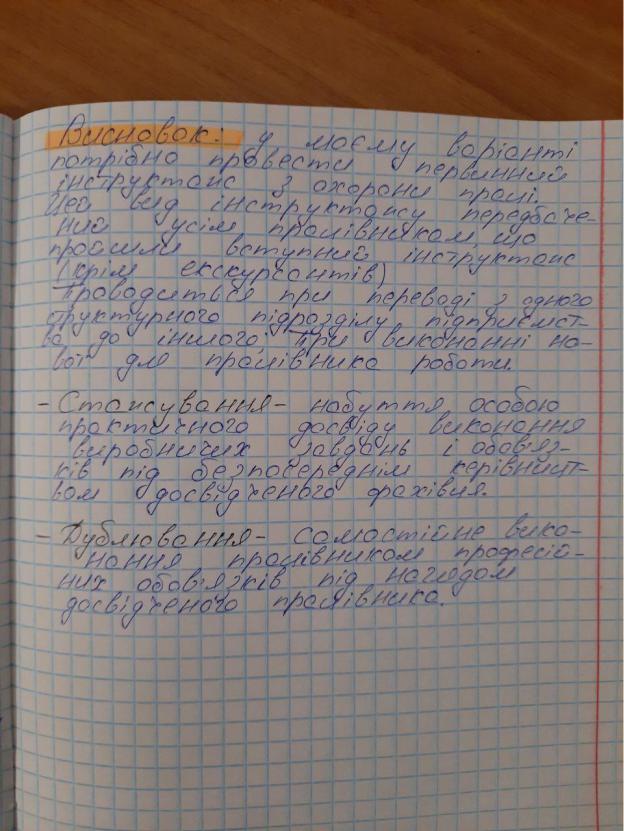 Висновок: у моєму варіанті
потрібно провести первинний
інструктаж з охорони праці.
Цей вид інструктажу передбаче-
ний усім працівникам, що
пройшли вступний інструктаж
(крім екскурсантів)
Проводиться при переводі з одного
структурного підрозділу підприємст-
ва до іншого; При виконанні но-
вої для працівника роботи.
- Стажування - набуття особою
практичного досвіду виконання
виробничих завдань і обов'яз-
ків під безпосереднім керівницт-
вом досвідченого фахівця.
- Дублювання - самостійне вико-
нання працівником професій-
них обов'язків під наглядом
досвідченого працівника.